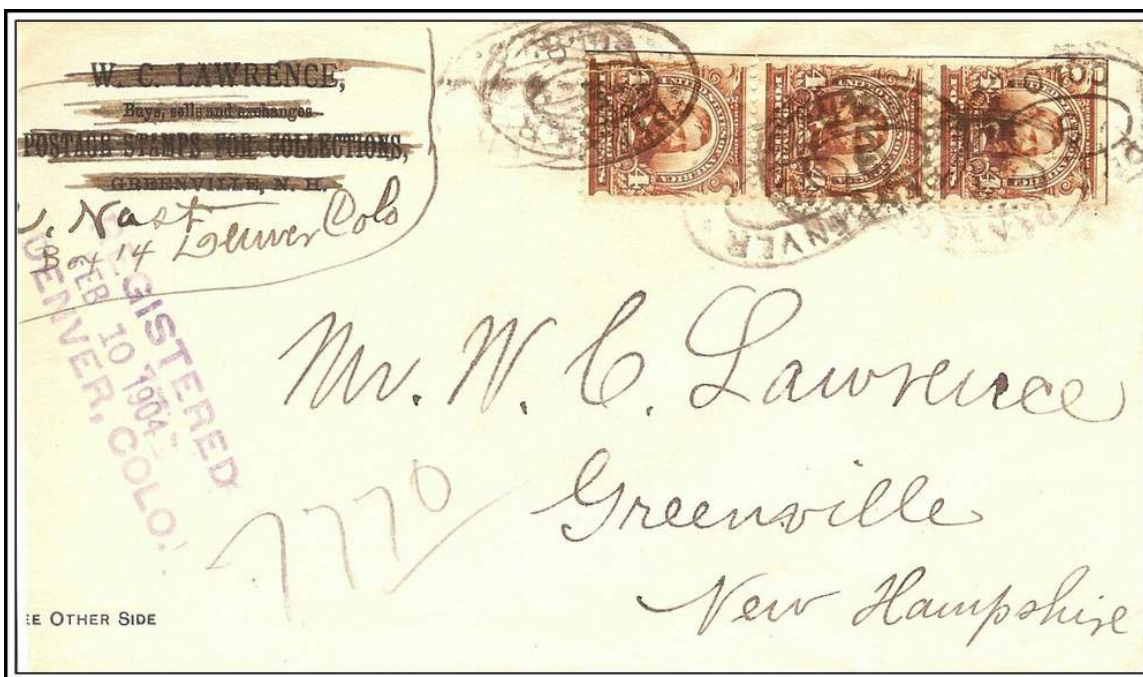 W. C. LAWRENCE,
Buys, sells and exchanges
POSTAGE STAMPS FOR COLLECTIONS,
GREENVILLE, N. H.
Nast
Box 14 Denver Colo
REGISTERED
FEB 10 1904
DENVER, COLO.
Mr. W. C. Lawrence
Greenville
New Hampshire
7770
EE OTHER SIDE